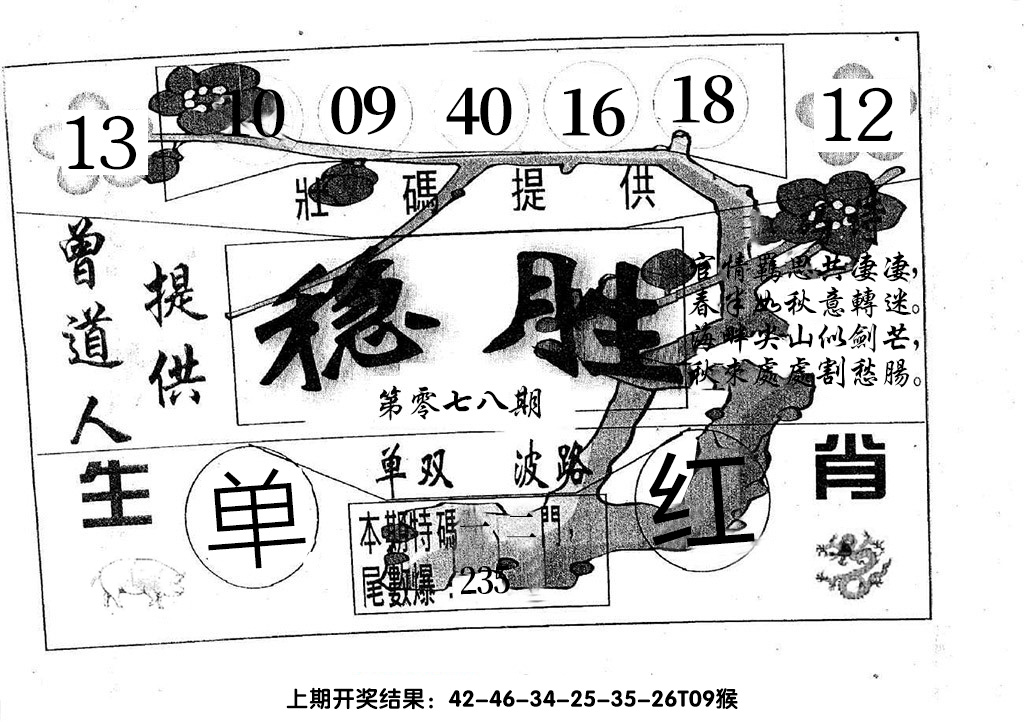 13 10 09 40 16 18 12
壯 碼 提 供
曾道人
提供
稳胜
第零七八期
官情羈思共淒淒，
春半如秋意轉迷。
海畔尖山似劍芒，
秋來處處割愁腸。
单双 波路
生 肖
单
红
本期特碼一、二門，
尾數爆：235
上期开奖结果：42-46-34-25-35-26T09猴